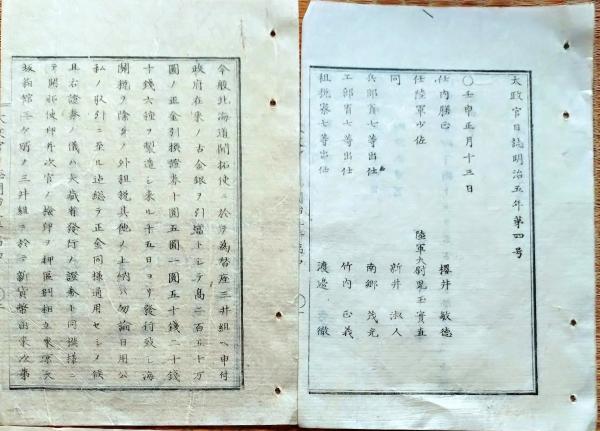 太政官日誌明治五年第四号
〇壬申正月十三日
任内膳正 櫻井 敏徳
任陸軍少佐 陸軍大尉児玉實直
同 新井 淑人
兵部省七等出仕 南郷 茂光
工部省七等出仕 竹内 正義
租税寮七等出仕 渡邉 徹
今般北海道開拓使ニ於テ為替座三井組ヘ申付
政府在来ノ古金銀ヲ引當トシテ高二百五十万
圓ノ正金引換證券十圓五圓一圓五十錢二十錢
十錢六種ヲ製造シ来ル十五日ヨリ發行致シ海
關税ヲ除クノ外租税其他ノ上納ハ勿論日用公
私ノ取引ニ至ル迄総テ正金同様通用セシメ候
且右證券ノ儀ハ大蔵省發行ノ證券ト同模様ニ
テ開拓使印并次官ノ検印ヲ押區別相立東京大
坂箱館三ケ所ノ三井組ニ於テ新貨幣出来次第